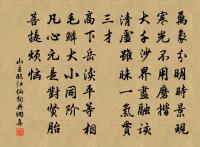 萬象分明時景現
寒光不用磨揩
大千沙界盡融該
清虛雖昧一氣貫
三才
高下岳平等相
毛鱗大小同階
凡心元是賢胎
菩提煩惱
山主臨江仙詞典網集